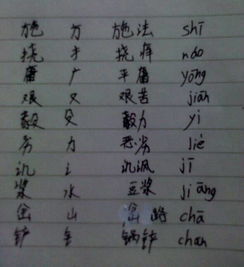 施 方 施法 shī
挠 扌 挠痒 náo
庸 广 平庸 yōng
艰 又 艰苦 jiān
毅 殳 毅力 yì
劣 力 恶劣 liè
讥 讠 讥讽 jī
浆 水 豆浆 jiāng
岔 山 岔路 chà
铲 钅 锅铲 chǎn